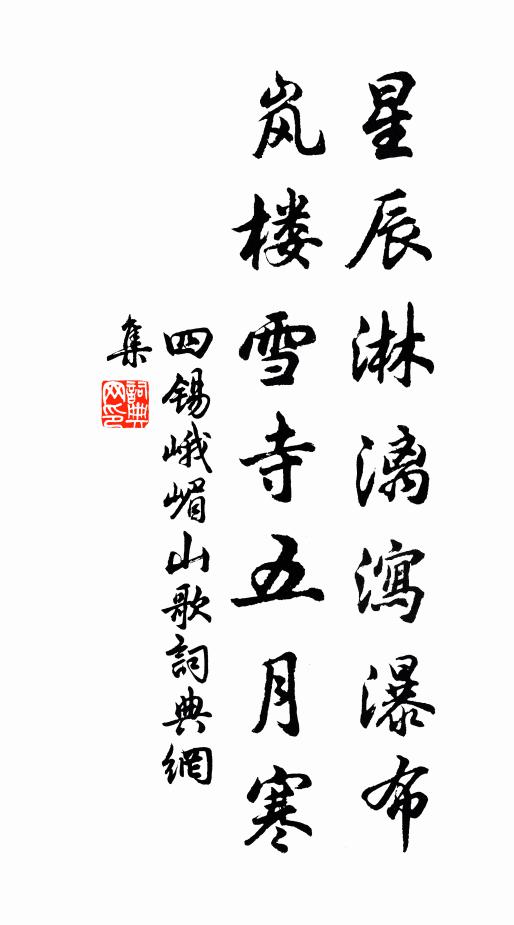 星辰淋漓瀉瀑布
岚楼雪寺五月寒
四锡峨嵋山歌詞典網
集
詞典网印